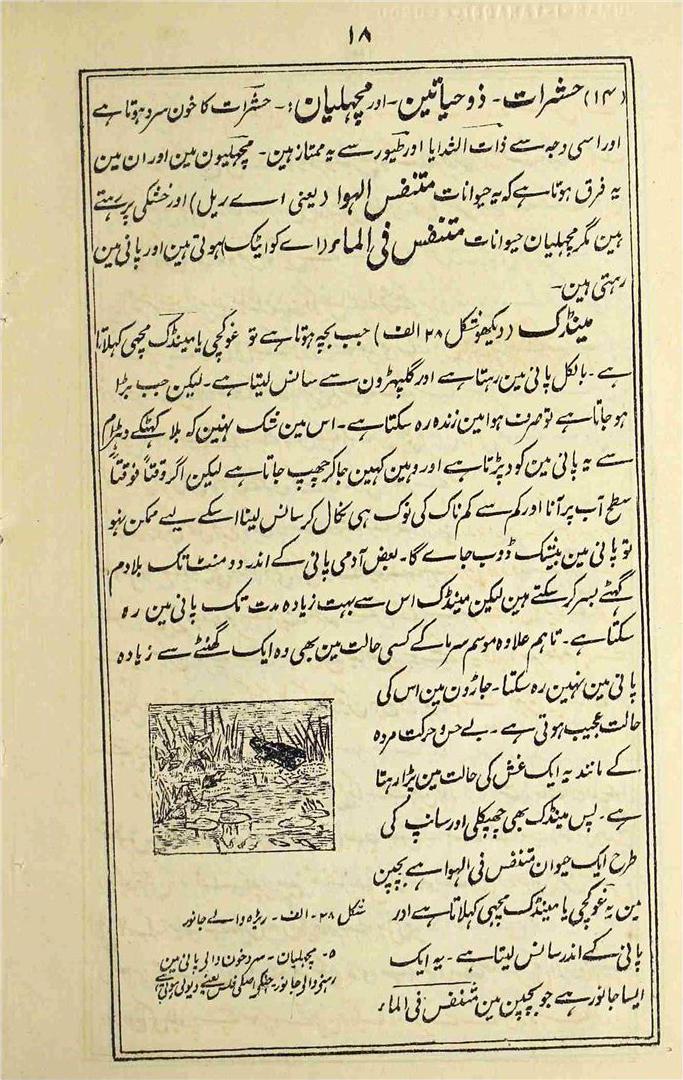 ۱۸
(۱۴) حشرات۔ ذوحیاتین۔ اور مچہلیان :۔ حشرات کا خون سرد ہوتا ہے
اور اسی وجہ سے ذات الثدایا اور طیور سے یہ ممتاز ہین۔ مچہلیون مین اور ان مین
یہ فرق ہوتا ہے کہ یہ حیوانات متنفس الہوا (یعنی اے ریل) اور خشکی پر رہتے
ہین مگر مچہلیان حیوانات متنفس فی الماء (اے کواٹک) ہوتی ہین اور پانی مین
رہتی ہین۔
مینڈک (دیکھو شکل ۲۸ الف) جب بچہ ہوتا ہے تو غوکچی یا مینڈک مچھی کہلاتا
ہے۔ بالکل پانی مین رہتا ہے اور گلپہڑون سے سانس لیتا ہے۔ لیکن جب بڑا
ہو جاتا ہے تو صرف ہوا مین زندہ رہ سکتا ہے۔ اس مین شک نہین کہ بلا کہٹکے دہڑام
سے یہ پانی مین کود پڑتا ہے اور وہین کہین جا کر چھپ جاتا ہے لیکن اگر وقتاً فوقتاً
سطح آب پر آنا اور کم سے کم ناک کی نوک ہی نکال کر سانس لینا اسکے لیے ممکن نہو
تو پانی مین بیشک ڈوب جاے گا۔ بعض آدمی پانی کے اندر دو منٹ تک بلا دم
گہٹے بسر کر سکتے ہین لیکن مینڈک اس سے بہت زیادہ مدت تک پانی مین رہ
سکتا ہے۔ تاہم علاوہ موسم سرما کے کسی حالت مین بھی وہ ایک گھنٹے سے زیادہ
پانی مین نہین رہ سکتا۔ جاڑون مین اس کی
حالت عجیب ہوتی ہے۔ بے حس و حرکت مردہ
کے مانند یہ ایک غش کی حالت مین پڑا رہتا
ہے۔ پس مینڈک بھی چھپکلی اور سانپ کی
طرح ایک حیوان متنفس فی الہوا ہے بچپن
مین یہ غوکچی یا مینڈک مچھی کہلاتا ہے اور
پانی کے اندر سانس لیتا ہے۔ یہ ایک
ایسا جانور ہے جو بچپن مین متنفس فی الماء
شکل ۲۸۔ الف۔ ریڑہ والے جانور
۵۔ مچہلیان۔ سرد خون والی پانی مین
رہنے والی جانور۔ جنکی فلس یعنے دیولی ہوتی ہے